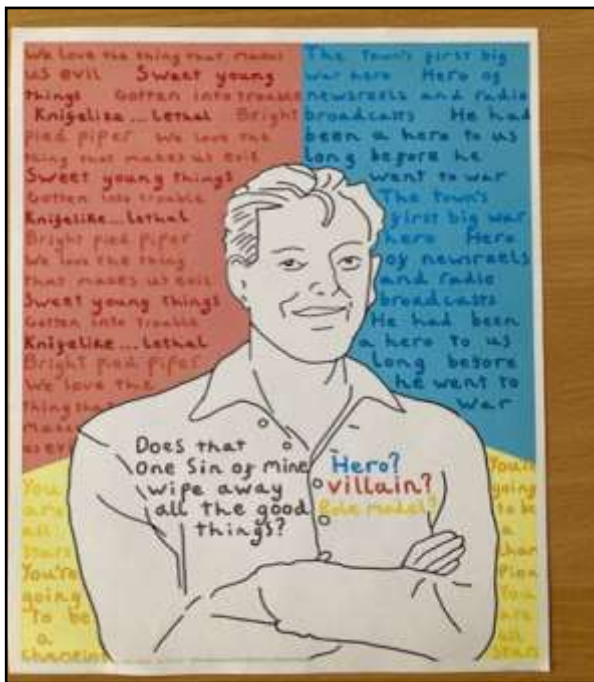 We love the thing that makes
us evil Sweet young
things Gotten into trouble
Knifelike...Lethal Bright
pied piper We love the
thing that makes us evil
Sweet young things
Gotten into trouble
Knifelike...Lethal
Bright pied piper
We love the thing
that makes us evil
Sweet young things
Gotten into trouble
Knifelike...Lethal
Bright pied piper
We love the
thing that
makes
us evil
The town's first big
war hero Hero of
newsreels and radio
broadcasts He had
been a hero to us
long before he
went to war
The town's
first big war
hero Hero
of newsreels
and radio
broadcasts
He had been
a hero to us
long before
he went to
war
Does that
one sin of mine
wipe away
all the good
things?
Hero?
villain?
Role model?
You
are
all
stars
You're
going
to be
a
champion
You're
going
to be
a
cham
pion
You
are
all
stars